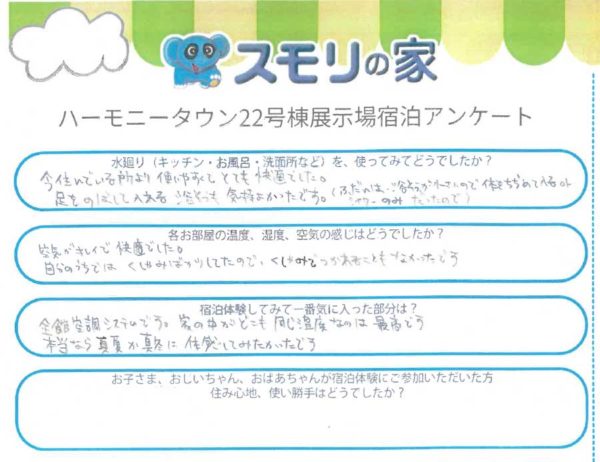 スモリの家
ハーモニータウン22号棟展示場宿泊アンケート
水廻り（キッチン・お風呂・洗面所など）を、使ってみてどうでしたか？
今住んでいる所より使いやすくてとても快適でした。
足をのばして入れる浴そうも気持よかったです。（ふだんは、浴そうが小さいので体をちぢめて入るか
シャワーのみだったので）
各お部屋の温度、湿度、空気の感じはどうでしたか？
空気がキレイで快適でした。
自分のうちではくしゃみばかりしてたので、くしゃみでつかれることもなかったです
宿泊体験してみて一番気に入った部分は？
全館空調システムです。家の中がどこも同じ温度なのは最高です
本当なら真夏か真冬に体感してみたかったです
お子さま、おじいちゃん、おばあちゃんが宿泊体験にご参加いただいた方
住み心地、使い勝手はどうでしたか？